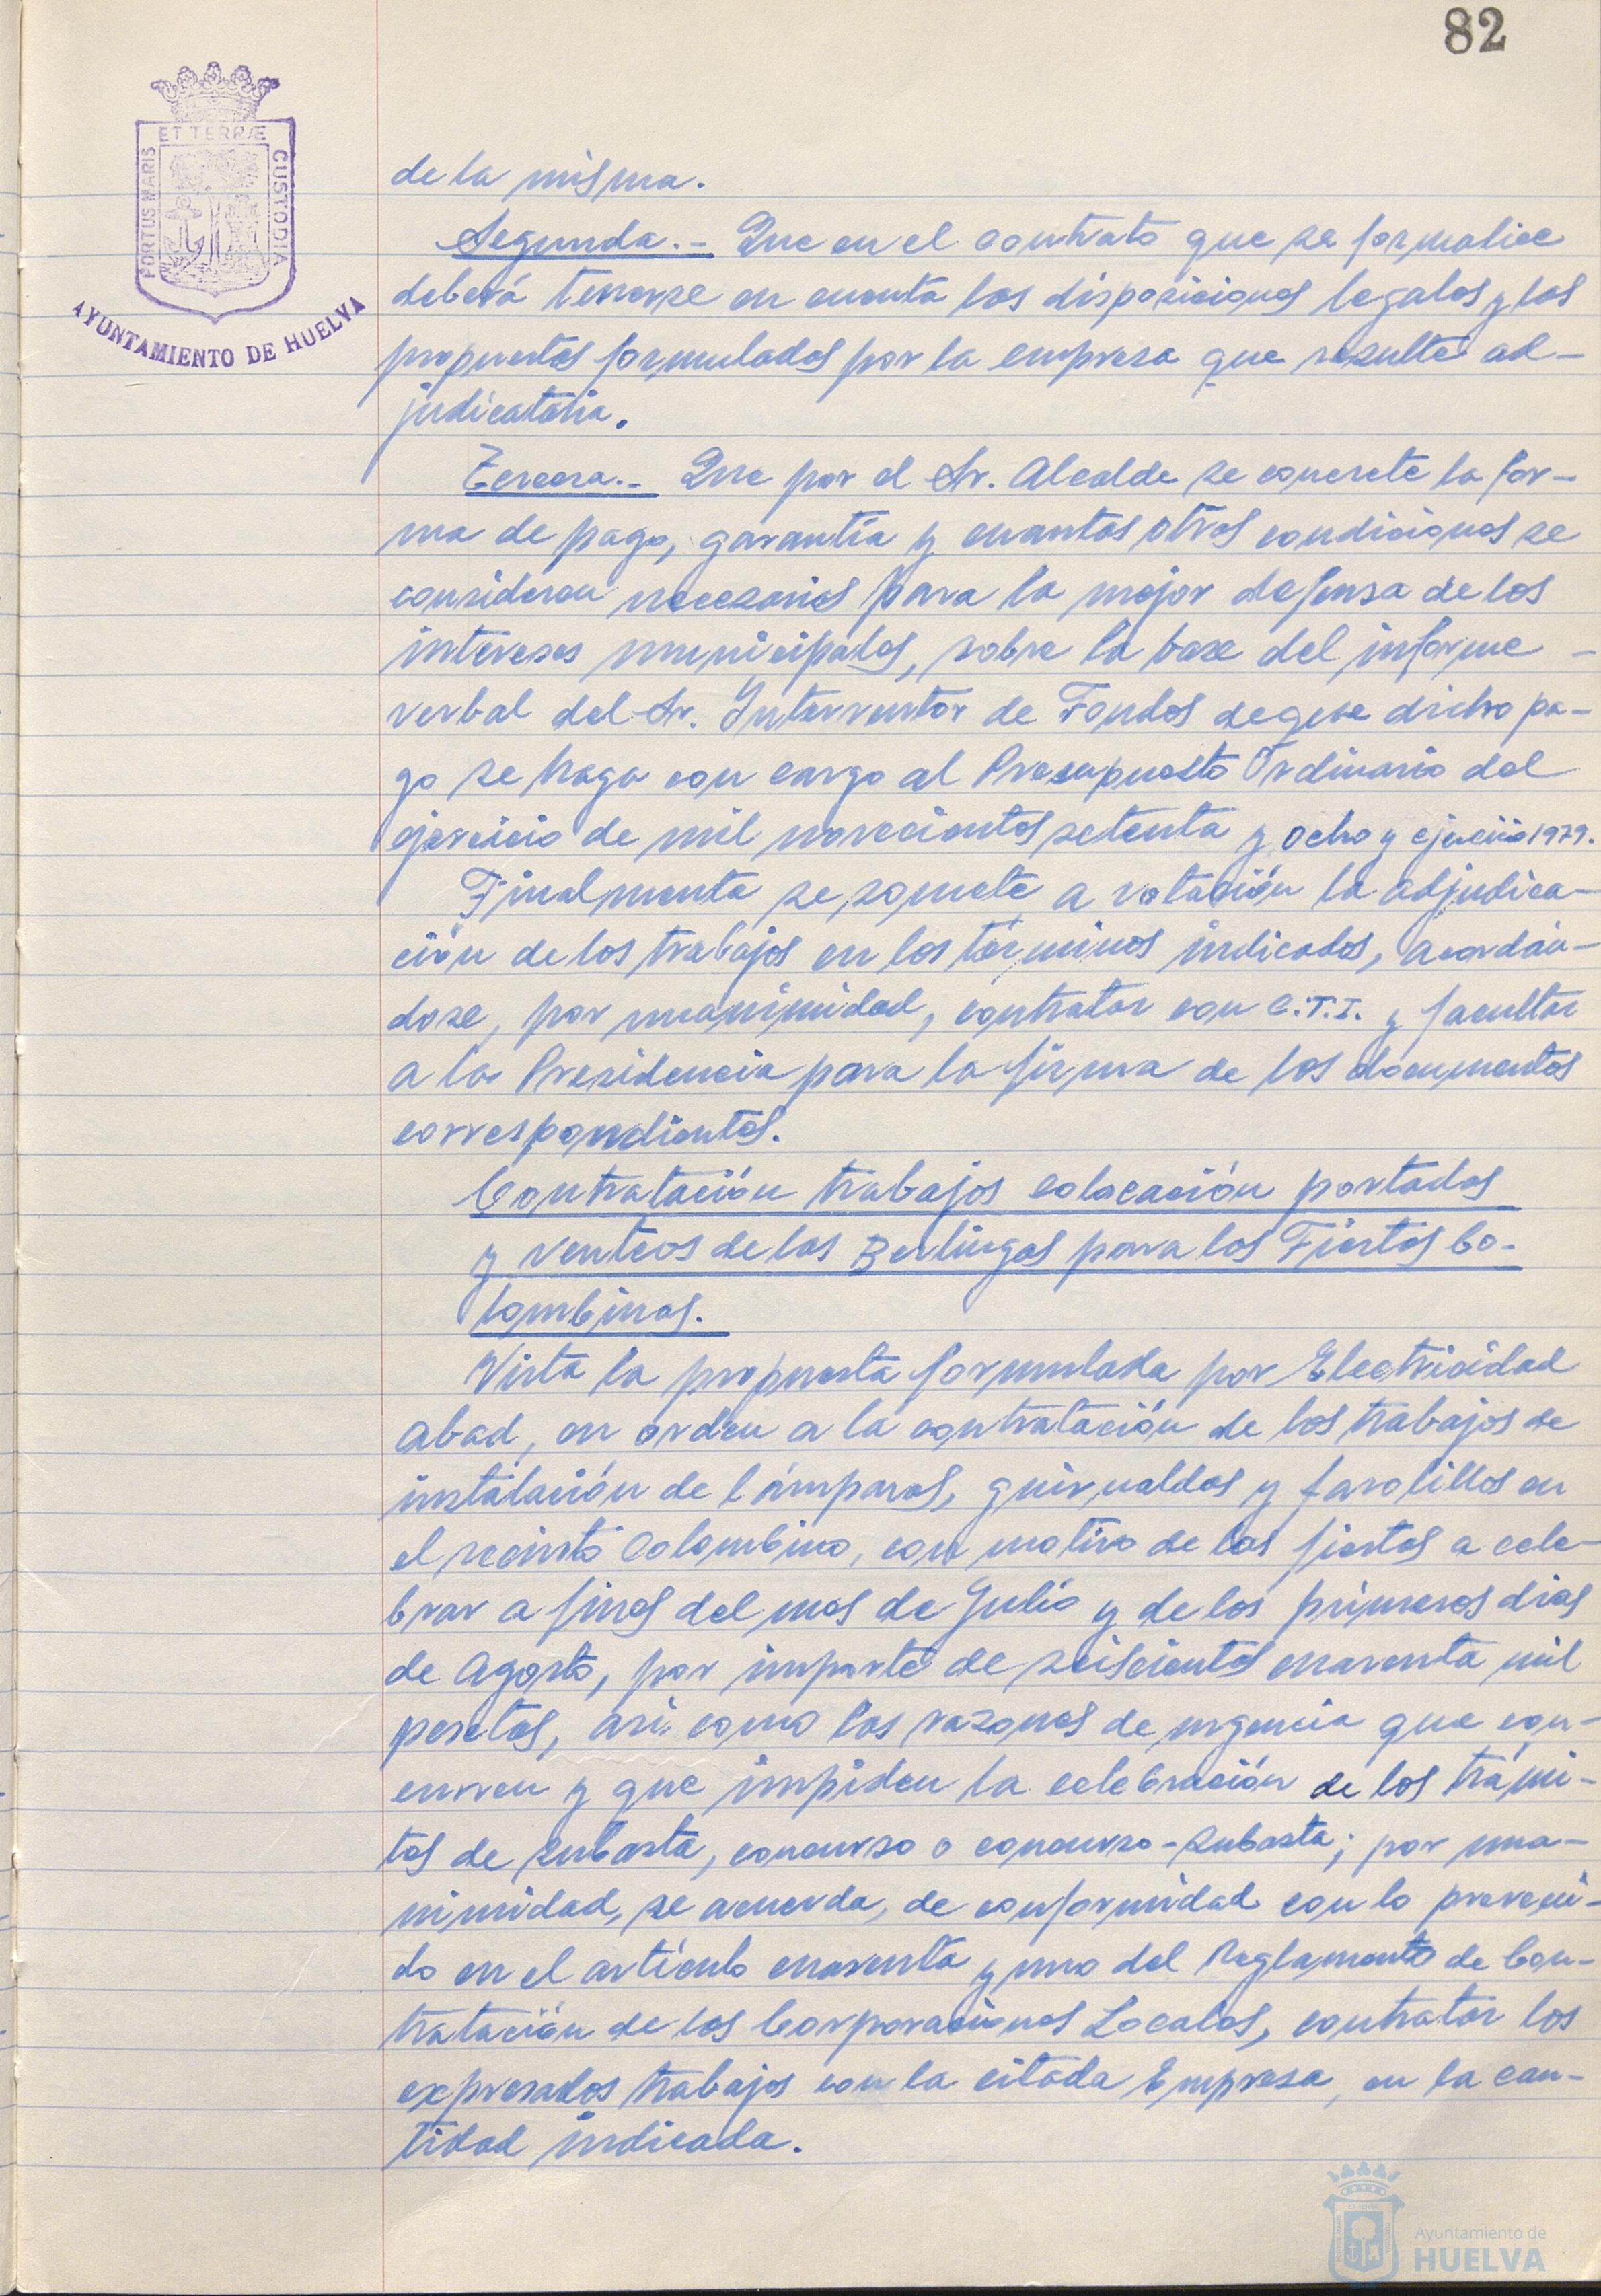 82
ET TERRÆ
PORTUS MARIS
CUSTODIA
AYUNTAMIENTO DE HUELVA
de la misma.
Segunda.- Que en el contrato que se formalice
deberá tenerse en cuenta las disposiciones legales y las
propuestas formuladas por la empresa que resulte ad-
judicataria.
Tercera.- Que por el Sr. Alcalde se concrete la for-
ma de pago, garantía y cuantas otras condiciones se
consideren necesarias para la mejor defensa de los
intereses municipales, sobre la base del informe -
verbal del Sr. Interventor de Fondos de que dicho pa-
go se haga con cargo al Presupuesto Ordinario del
ejercicio de mil novecientos setenta y ocho y ejercicio 1979.
Finalmente se somete a votación la adjudica-
ción de los trabajos en los términos indicados, acordán-
dose, por unanimidad, contratar con C.T.I. y facultar
a la Presidencia para la firma de los documentos
correspondientes.
Contratación trabajos colocación portadas
y venteos de las Berlingas para las Fiestas Co-
lombinas.
Vista la propuesta formulada por Electricidad
Abad, en orden a la contratación de los trabajos de
instalación de lámparas, guirnaldas y farolillos en
el recinto Colombino, con motivo de las fiestas a cele-
brar a fines del mes de Julio y de los primeros dias
de Agosto, por importe de seiscientas cuarenta mil
pesetas, así como las razones de urgencia que con-
curren y que impiden la celebración de los trámi-
tes de subasta, concurso o concurso-subasta; por una-
nimidad, se acuerda, de conformidad con lo preveni-
do en el artículo cuarenta y uno del Reglamento de Con-
tratación de las Corporaciones Locales, contratar los
expresados trabajos con la citada Empresa, en la can-
tidad indicada.
Ayuntamiento de
HUELVA